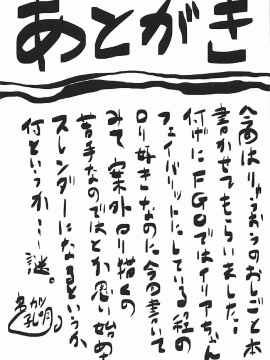 あとがき
今回はりゅうおうのおしごと本
書かせてもらいました。
何げにFGOではイリアちゃん
フェイバリットにしている程の
ロリ好きなのに今回書いて
みて案外ロリ描くの
苦手なのではとか思い始め
スレンダーになるというか
何というか…謎。